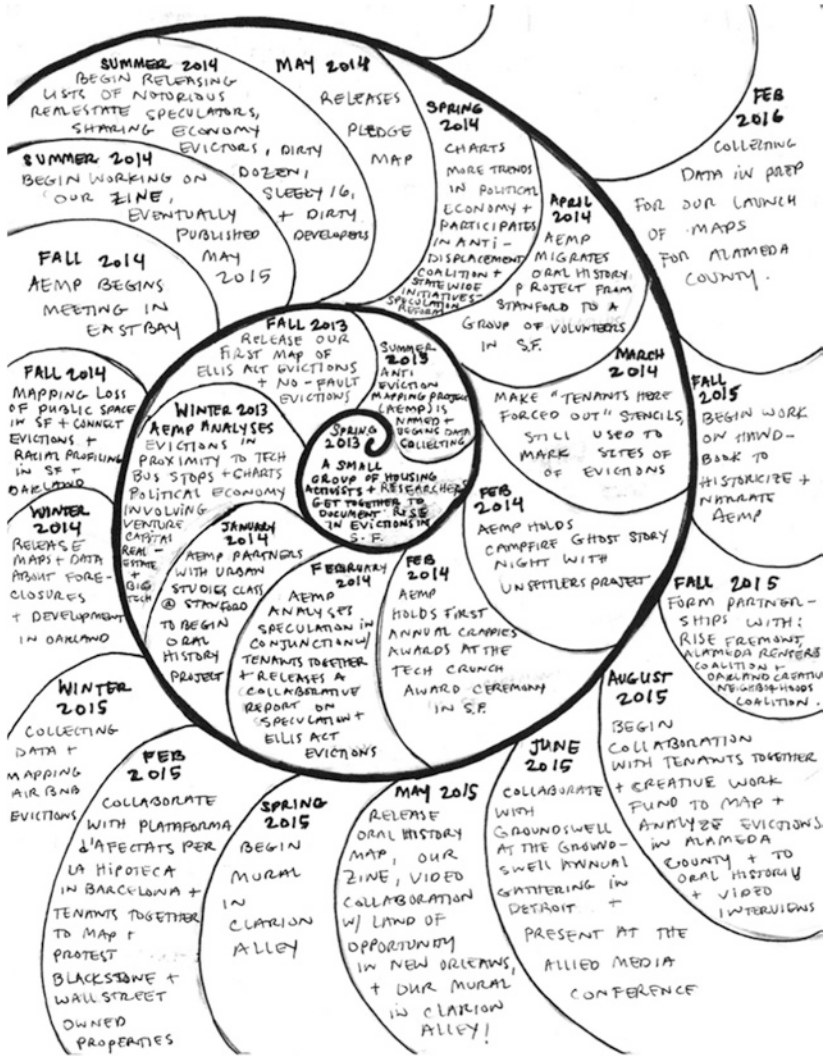 SPRING
2013
A SMALL
GROUP OF HOUSING
ACTIVISTS + RESEARCHERS
GET TOGETHER TO
DOCUMENT RISE
IN EVICTIONS IN
S.F.
SUMMER
2013
ANTI
EVICTION
MAPPING PROJECT
(AEMP) IS
NAMED +
BEGINS DATA
COLLECTING
FALL 2013
RELEASE OUR
FIRST MAP OF
ELLIS ACT EVICTIONS
+ NO-FAULT
EVICTIONS
WINTER 2013
AEMP ANALYSES
EVICTIONS IN
PROXIMITY TO TECH
BUS STOPS + CHARTS
POLITICAL ECONOMY
INVOLVING
VENTURE
CAPITAL
REAL-
ESTATE
+
BIG
TECH
JANUARY
2014
AEMP PARTNERS
WITH URBAN
STUDIES CLASS
@ STANFORD
TO BEGIN
ORAL
HISTORY
PROJECT
FEBRUARY
2014
AEMP
ANALYSES
SPECULATION IN
CONJUNCTION W/
TENANTS TOGETHER
+ RELEASES A
COLLABORATIVE
REPORT ON
SPECULATION +
ELLIS ACT
EVICTIONS
FEB
2014
AEMP
HOLDS FIRST
ANNUAL CRAPPIES
AWARDS AT THE
TECH CRUNCH
AWARD CEREMONY
IN S.F.
FEB
2014
AEMP HOLDS
CAMPFIRE GHOST STORY
NIGHT WITH
UNSETTLERS PROJECT
MARCH
2014
MAKE "TENANTS HERE
FORCED OUT" STENCILS,
STILL USED TO
MARK SITES OF
OF EVICTIONS
APRIL
2014
AEMP
MIGRATES
ORAL HISTORY
PROJECT FROM
STANFORD TO A
GROUP OF VOLUNTEERS
IN S.F.
SPRING
2014
CHARTS
MORE TRENDS
IN POLITICAL
ECONOMY +
PARTICIPATES
IN ANTI-
DISPLACEMENT
COALITION +
STATEWIDE
INITIATIVES-
SPECULATION
REFORM
MAY 2014
RELEASES
PLEDGE
MAP
SUMMER 2014
BEGIN RELEASING
LISTS OF NOTORIOUS
REALESTATE SPECULATORS,
SHARING ECONOMY
EVICTORS, DIRTY
DOZEN,
SLEEZY 16,
+ DIRTY
DEVELOPERS
SUMMER 2014
BEGIN WORKING ON
OUR ZINE,
EVENTUALLY
PUBLISHED
MAY
2015
FALL 2014
AEMP BEGINS
MEETING IN
EASTBAY
FALL 2014
MAPPING LOSS
OF PUBLIC SPACE
IN SF + CONNECT
EVICTIONS +
RACIAL PROFILING
IN SF +
OAKLAND
WINTER
2014
RELEASE
MAPS + DATA
ABOUT FORE-
CLOSURES
+ DEVELOPMENT
IN OAKLAND
WINTER
2015
COLLECTING
DATA +
MAPPING
AIR BNB
EVICTIONS
FEB
2015
COLLABORATE
WITH PLATAFORMA
d'AFECTATS PER
LA HIPOTECA
IN BARCELONA +
TENANTS TOGETHER
TO MAP +
PROTEST
BLACKSTONE +
WALLSTREET
OWNED
PROPERTIES
SPRING
2015
BEGIN
MURAL
IN
CLARION
ALLEY
MAY 2015
RELEASE
ORAL HISTORY
MAP, OUR
ZINE, VIDEO
COLLABORATION
W/ LAND OF
OPPORTUNITY
IN NEW ORLEANS,
+ OUR MURAL
IN CLARION
ALLEY!
JUNE
2015
COLLABORATE
WITH
GROUNDSWELL
AT THE GROUND-
SWELL ANNUAL
GATHERING IN
DETROIT +
PRESENT AT THE
ALLIED MEDIA
CONFERENCE
AUGUST
2015
BEGIN
COLLABORATION
WITH TENANTS TOGETHER
+ CREATIVE WORK
FUND TO MAP +
ANALYZE EVICTIONS
IN ALAMEDA
COUNTY + TO
ORAL HISTORY
+ VIDEO
INTERVIEWS
FALL 2015
FORM PARTNER-
SHIPS WITH:
RISE FREMONT,
ALAMEDA RENTERS
COALITION +
OAKLAND CREATIVE
NEIGHBORHOODS
COALITION.
FALL
2015
BEGIN WORK
ON HAND-
BOOK TO
HISTORICIZE +
NARRATE
AEMP
FEB
2016
COLLECTING
DATA IN PREP
FOR OUR LAUNCH
OF MAPS
FOR ALAMEDA
COUNTY.